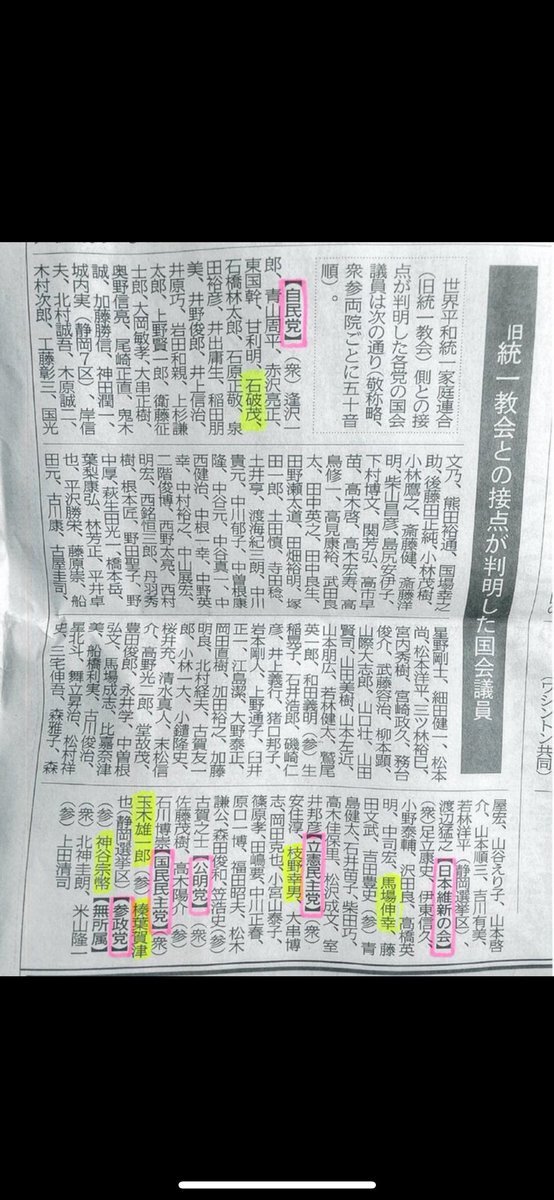 旧統一教会との接点が判明した国会議員
世界平和統一家庭連合
(旧統一教会)側との接
点が判明した各党の国会
議員は次の通り(敬称略、
衆参両院ごとに五十音
順)。
【自民党】(衆)逢沢一
郎、青山周平、赤沢亮正、
東国幹、甘利明、石破茂、
石橋林太郎、石原正敬、泉
田裕彦、井出庸生、稲田朋
美、井野俊郎、井上信治、
井原巧、岩田和親、上杉謙
太郎、上野賢一郎、衛藤征
士郎、大岡敏孝、大串正樹、
奥野信亮、尾崎正直、鬼木
誠、加藤勝信、神田潤一、
城内実(静岡7区)、岸信
夫、北村誠吾、木原誠二、
木村次郎、工藤彰三、国光
文乃、熊田裕通、国場幸之
助、後藤田正純、小林茂樹、
小林鷹之、斎藤健、斎藤洋
明、柴山昌彦、島尻安伊子、
下村博文、関芳弘、高市早
苗、高木啓、高木宏寿、高
鳥修一、高見康裕、武田良
太、田中英之、田中良生、
田野瀬太道、田畑裕明、塚
田一郎、土田慎、寺田稔、
土井亨、渡海紀三朗、中川
貴元、中川郁子、中曽根康
隆、中谷元、中谷真一、中
西健治、中根一幸、中野英
幸、中村裕之、中山展宏、
二階俊博、西野太亮、西村
明宏、西銘恒三郎、丹羽秀
樹、根本匠、野田聖子、野
中厚、萩生田光一、橋本岳、
葉梨康弘、林芳正、平井卓
也、平沢勝栄、藤原崇、船
田元、古川康、古屋圭司、
星野剛士、細田健一、松本
尚、松本洋平、三ツ林裕巳、
宮内秀樹、宮崎政久、務台
俊介、武藤容治、柳本顕、
山際大志郎、山口壮、山田
賢司、山田美樹、山本左近、
山本朋広、若林健太、鷲尾
英一郎、和田義明(参)生
稲晃子、石井浩郎、磯崎仁
彦、井上義行、猪口邦子、
岩本剛人、上野通子、臼井
正一、江島潔、大野泰正、
岡田直樹、加田裕之、加藤
明良、北村経夫、古賀友一
郎、小林一大、小鑓隆史、
桜井充、清水真人、末松信
介、高野光二郎、堂故茂、
豊田俊郎、永井学、中曽根
弘文、馬場成志、比嘉奈津
美、船橋利実、古川俊治、
星北斗、舞立昇治、松村祥
史、三宅伸吾、森雅子、森
屋宏、山谷えり子、山本啓
介、山本順三、吉川有美、
若林洋平(静岡選挙区)、
渡辺猛之【日本維新の会】
(衆)足立康史、伊東信久、
小野泰輔、沢田良、高橋英
明、中司宏、馬場伸幸、藤
田文武、吉田豊史(参)青
島健太、石井苗子、柴田巧、
高木佳保里、松沢成文、室
井邦彦【立憲民主党】(衆)
安住淳、枝野幸男、大串博
志、岡田克也、小宮山泰子、
篠原孝、田嶋要、中川正春、
原口一博、福田昭夫、松木
謙公、森田俊和、笠浩史(参)
古賀之士【公明党】(衆)
佐藤茂樹、高木陽介(参)
石川博崇【国民民主党】(衆)
玉木雄一郎(参)榛葉賀津
也(静岡選挙区)【参政党】
(参)神谷宗幣【無所属】
(衆)北神圭朗、米山隆一
(参)上田清司
(ワシントン共同)